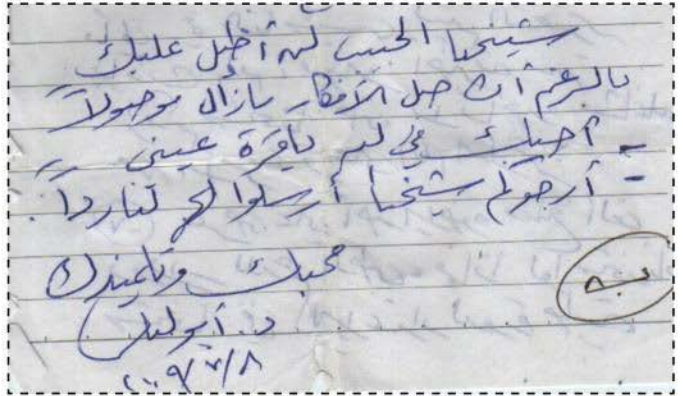 شيخنا الحبيب لن أطيل عليك
بالرغم أن حبل الأفكار مازال موصولاً
أحبك في الله ياقرة عيني
= أرجوكم شيخنا أرسلوا لنا رداً.
محبك وتلميذك
د. أبو
٢٠٠٩/٧/٨